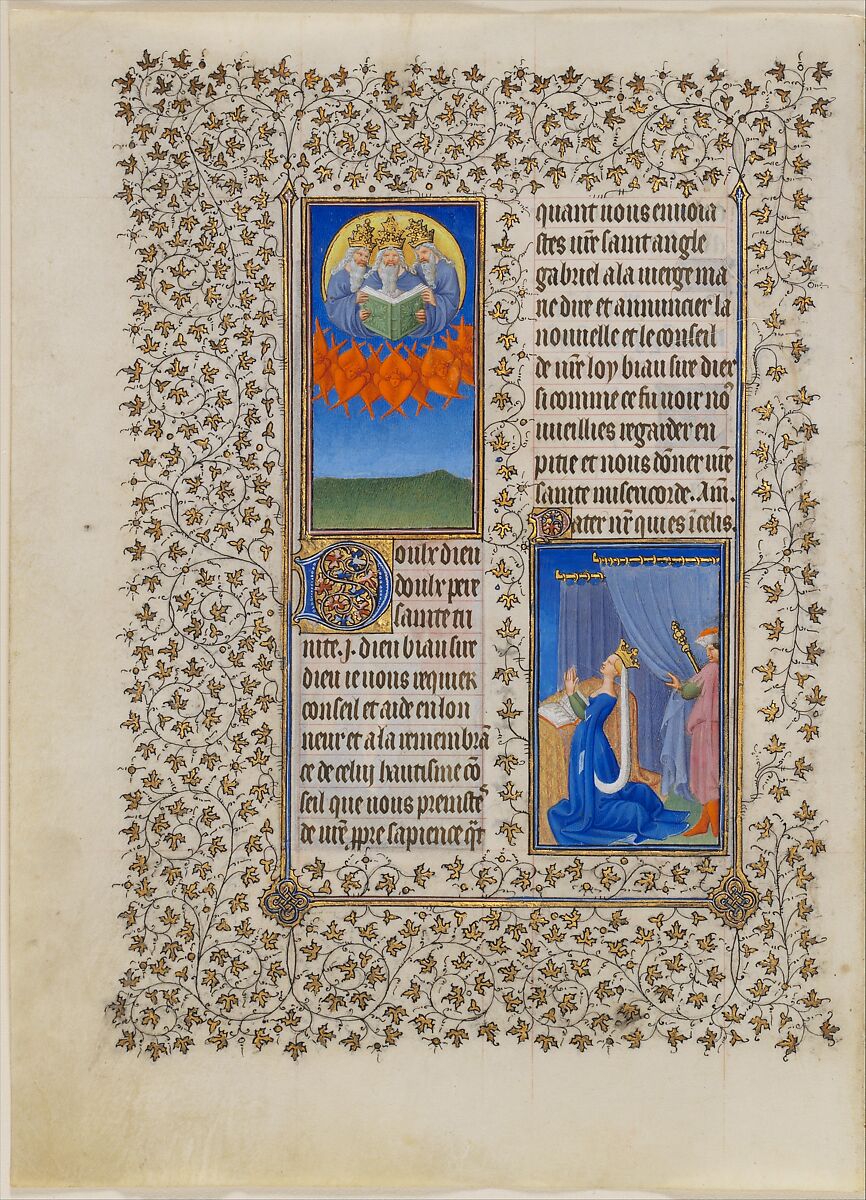 Doulx dieu
doulx pere
sainte tri
nite .j. dieu biau sire
dieu ie uous requier
conseil et aide en lon
neur et a la remembrā
ce de celuj hautisme cō
seil que uous preniste⁹
de ur̄e ꝓpre sapience q̄t
quant uous enuoia
stes ur̄e saint angle
gabriel a la uierge ma
rie dire et annuncier la
nouuelle et le conseil
de ur̄e loy biau sire dier
si comme ce fu uoir no⁹
uueillies regarder en
pitie et nous dōner ur̄e
sainte misericorde. Am̄.
Pater nr̄ qui es ī celis.